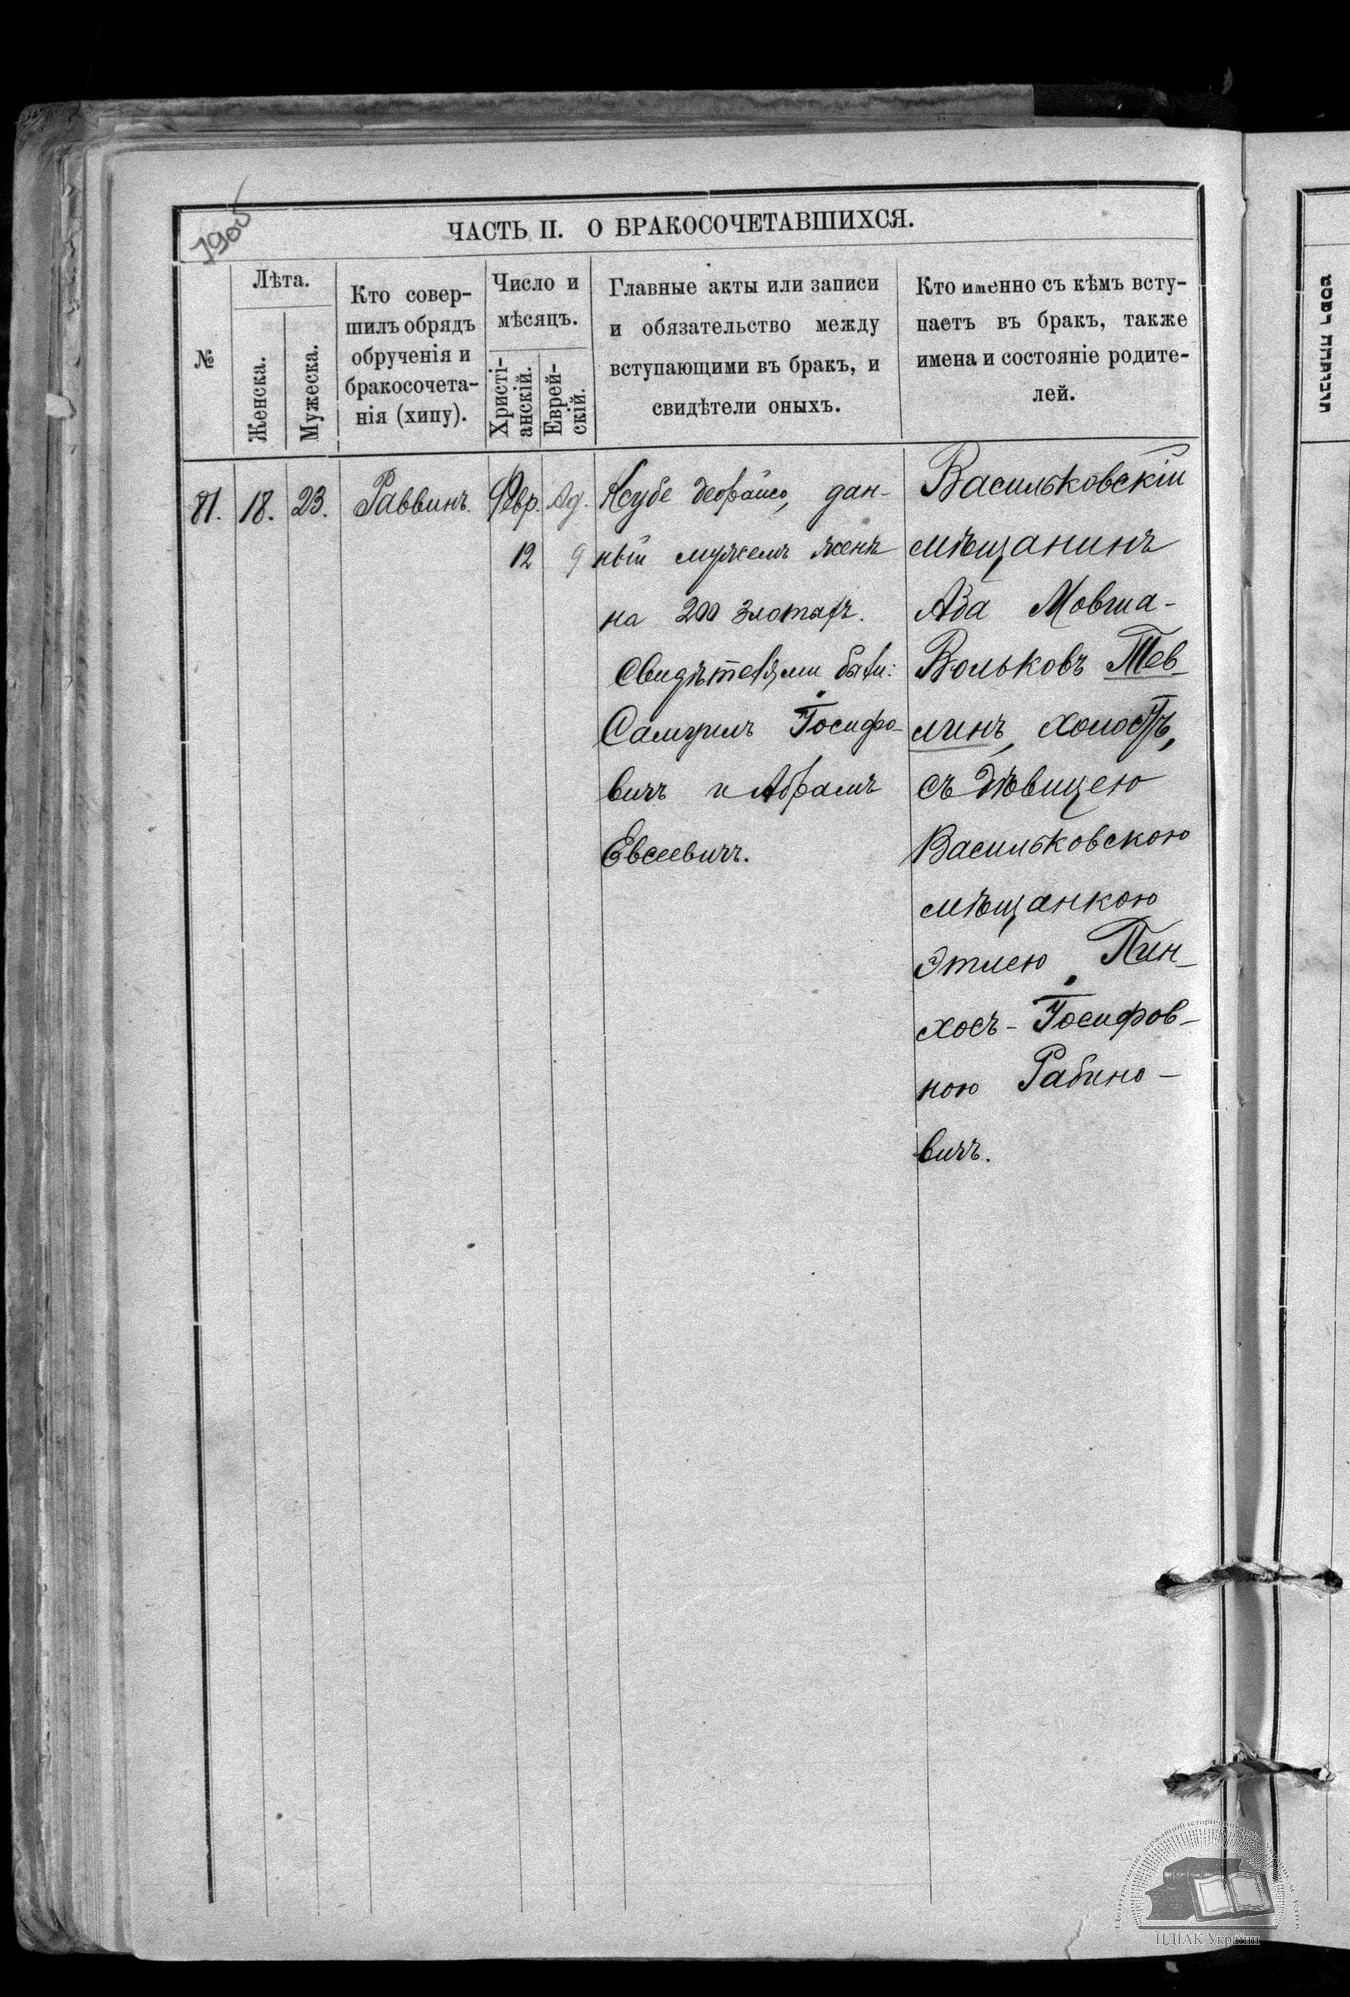 1905
ЧАСТЬ II. О БРАКОСОЧЕТАВШИХСЯ.
№
Лѣта.
Женска.
Мужеска.
Кто совер-
шилъ обрядъ
обрученія и
бракосочета-
нія (хипу).
Число и
мѣсяцъ.
Христі-
анскій.
Еврей-
скій.
Главные акты или записи
и обязательство между
вступающими въ бракъ, и
свидѣтели оныхъ.
Кто именно съ кѣмъ всту-
паетъ въ бракъ, также
имена и состояніе родите-
лей.
81.
18.
23.
Раввинъ.
Февр.
12
Ад.
9
дан-
ный мужемъ женѣ
на 200 злотыхъ.
Свидѣтелями были:
Самуилъ Іосифо-
вичъ и Абрамъ
Евсеевичъ.
Васильковскій
мѣщанинъ
Аба Мовша-
Вольковъ Тев-
линъ, холостъ,
съ дѣвицею
Васильковскою
мѣщанкою
Этлею Пин-
хосъ-Іосифов-
ною Рабино-
вичъ.
ЦДІАК України